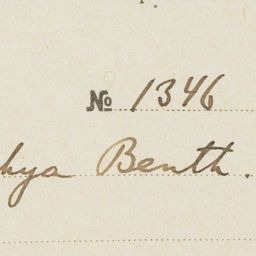 № 1346
hya Benth.